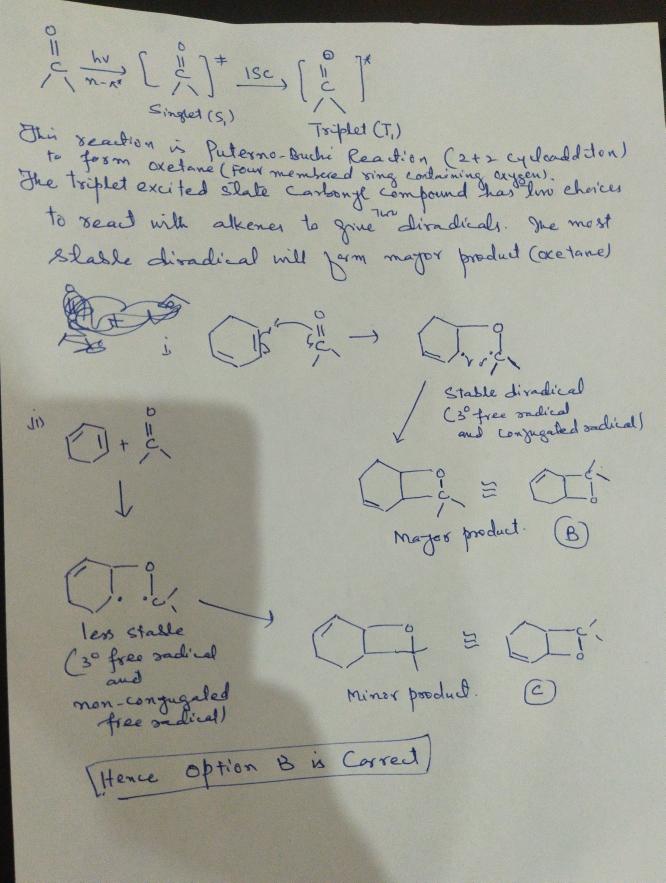 O
||
C
hν
n-π*
[ O || C ]*
ISC
[ O || C ]*
Singlet (S₁)
Triplet (T₁)
This reaction is Puterno-Buchi Reaction (2+2 cycloadditon)
to form oxetane (Four membered ring containing oxygen).
The triplet excited state carbonyl compound has two choices
to react with alkenes to give Two diradicals. The most
stable diradical will form major product (oxetane)
i)
O
||
C
O
C
Stable diradical
(3° free radical
and conjugated radical)
ii)
+
O
||
C
O
C
≡
C
O
Major product.
B
O
C
less stable
(3° free radical
and
non-conjugated
free radical)
O
≡
C
O
Minor product.
C
Hence option B is Correct